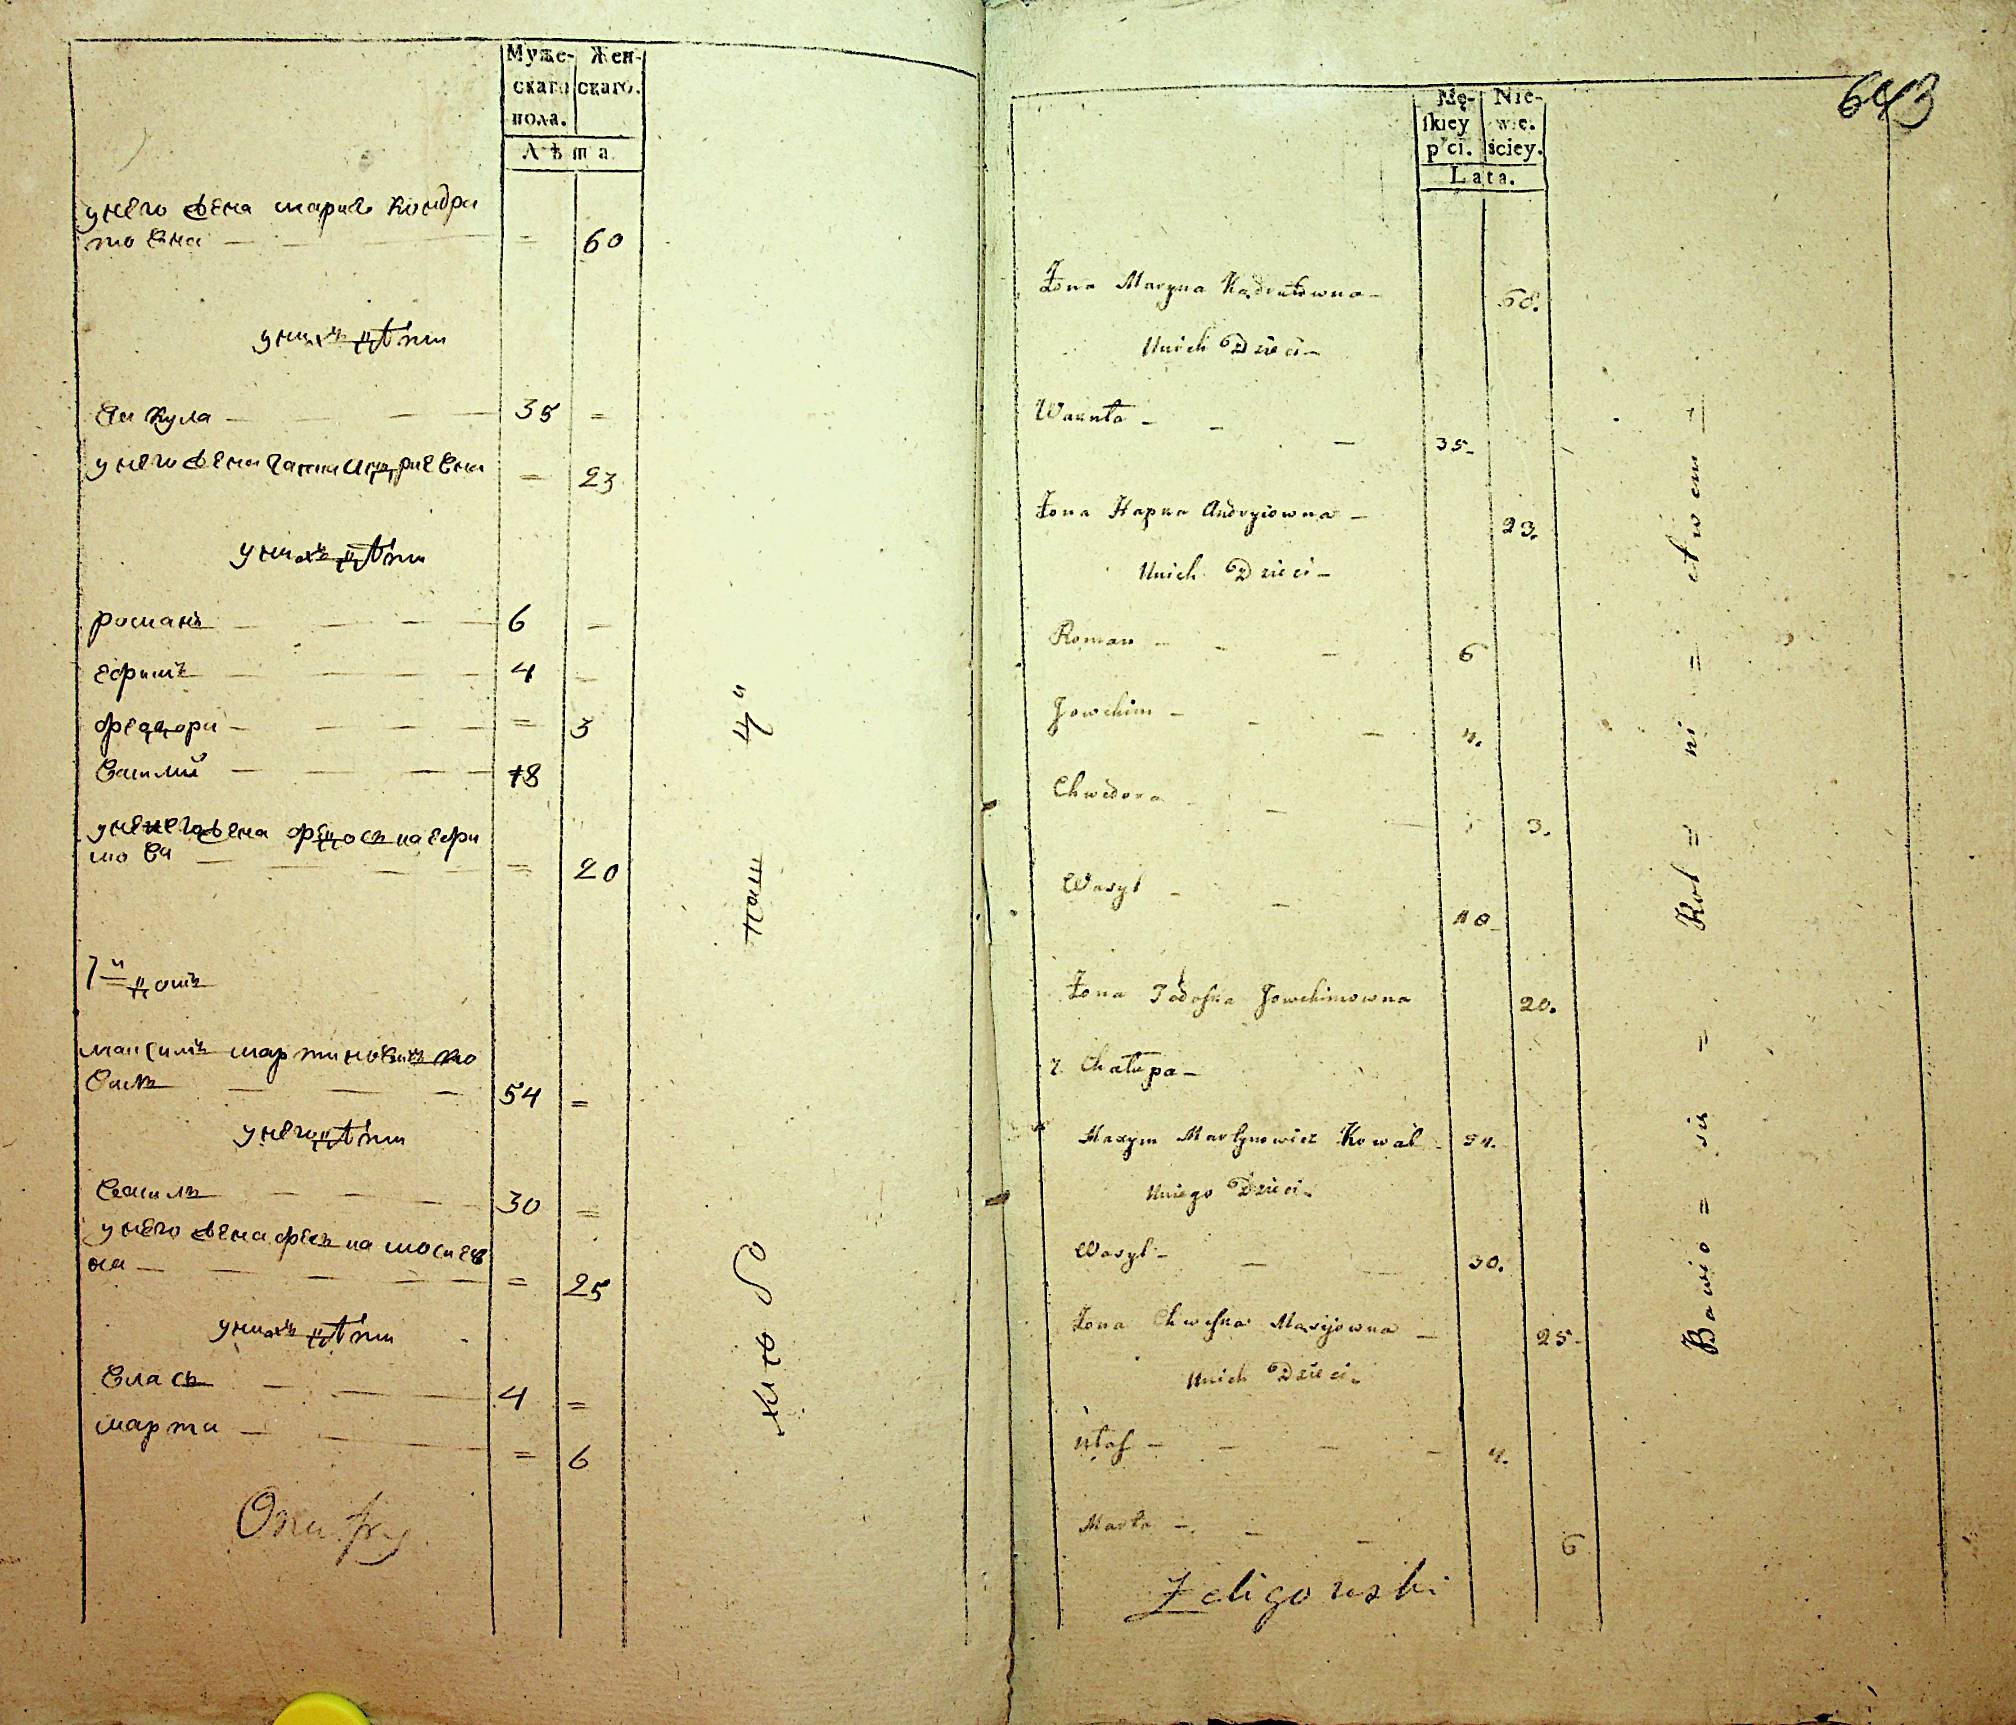 Муже- Жен-
скаго скаго.
пола.
Лѣта.
у него жена мария Кондра
товна — — = 60
у нихъ дѣти
Вакула — — — 35 =
у него жена Гапка Андриевна = 23
у нихъ дѣти
романъ — — — 6 —
ефимъ — — — 4 —
федора — — — = 3
Василий — — — 18
у него жена федоська ефи
мова — — — = 20
7й домъ
максимъ мартиновичъ ко
валь — — — 54 =
у него дѣти
Василь — — — 30 =
у него жена феська моисеев
на — — — = 25
у нихъ дѣти
Власъ — — — 4 =
марта — — — = 6
Onufry
643
Mę- Nie-
skiey wie-
płci. ściey.
Lata.
Żona Maryna Kądratowna — 60.
Unich Dzieci —
Wakuła — — — 35.
Żona Hapka Andryiowna — 23.
Unich Dzieci —
Roman — — — 6
Jowchim — — — 4.
Chwedora — — 3.
Wasyl — — 18
Żona Fedoska Jowchimowna 20.
7. Chałupa —
Maxym Martynowicz Kowal 54.
Uniego Dzieci.
Wasyl — — — 30.
Żona Chweska Masijowna — 25.
Unich Dzieci.
Ułas — — — 4.
Marta — — — 6
Żeligowski